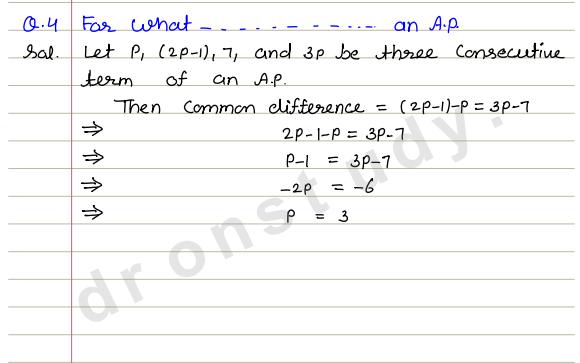 Q.4 For what - - - - - - - - - - an A.P.
Sol. Let P, (2P-1), 7, and 3P be three consecutive
term of an A.P.
Then common difference = (2P-1)-P = 3P-7
⇒ 2P-1-P = 3P-7
⇒ P-1 = 3P-7
⇒ -2P = -6
⇒ P = 3
dronstudy.